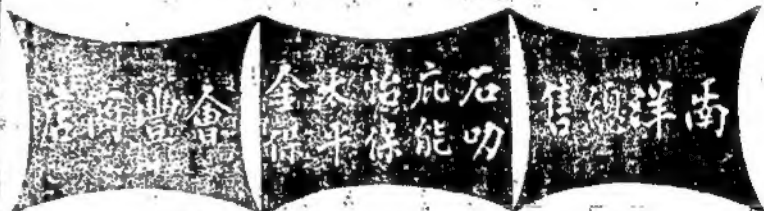 南洋總售
石叻
庇能
怡保
太平
金保
會豐